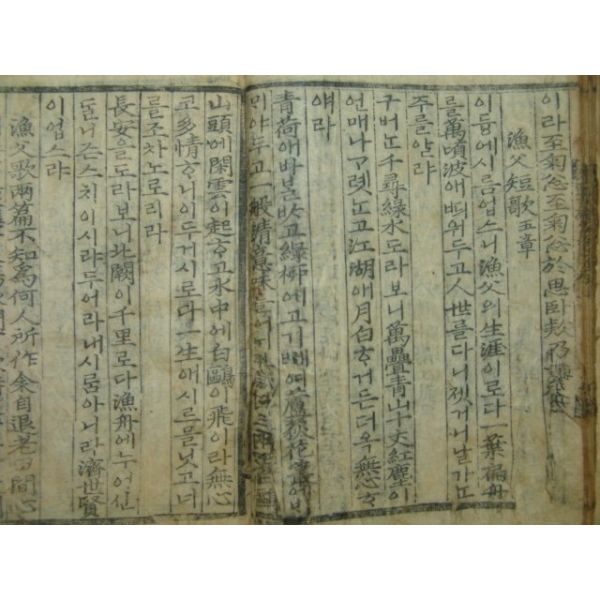 이라 至匊忩 至匊忩 於思臥 欸乃
漁父短歌五章
이듕에시름업스니漁父의生涯이로다一葉扁舟
를萬頃波애ᄠᅴ워두고人世를다니젯거니날가ᄂᆞᆫ
주를알랴
구버ᄂᆞᆫ千尋綠水도라보니萬疊青山十丈紅塵이
언매나ᄀᆞ렛ᄂᆞᆫ고江湖애月白ᄒᆞ거든더옥無心ᄒᆞ
얘라
青荷애바블ᄡᆞ고綠柳에고기ᄢᅦ여蘆荻花
야두고一般清意味를어
山頭에閑雲이起ᄒᆞ고水中에白鷗이飛이라無心
코多情ᄒᆞ니이두거시로다一生애시르믈닛고너
를조차노로리라
長安을도라보니北闕이千里로다漁舟에누어신
ᄃᆞᆯ니즌스치이시랴두어라내시름아니라濟世賢
이업스랴
漁父歌兩篇不知為何人所作余自退老田間心